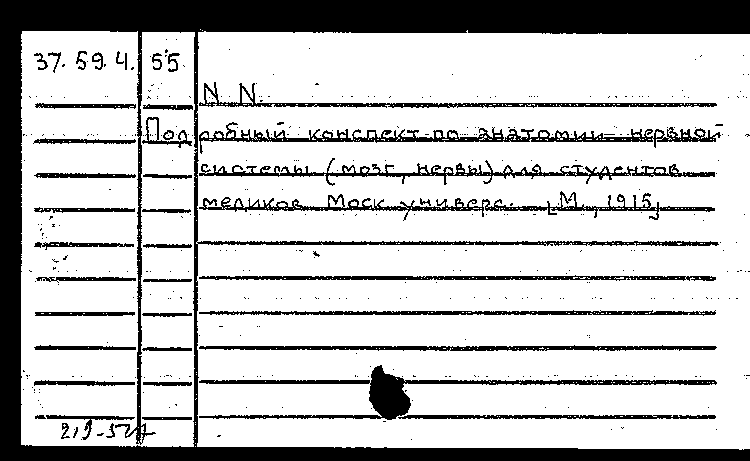 37.59.4. 55
N N.
Подробный конспект по анатомии нервной
системы (мозг, нервы) для студентов
медиков Моск универс. [М., 1915]